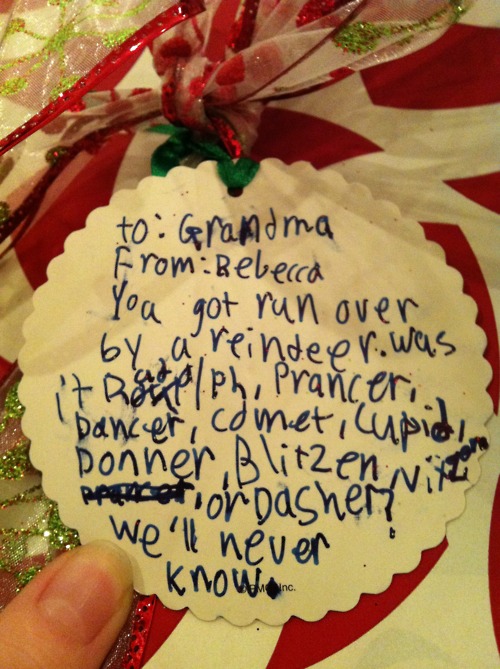 to: Grandma
From: Rebecca
You got run over
by a reindeer. was
it Rudolph, Prancer,
Dancer, comet, Cupid,
Donner, Blitzen, Vixen
, or Dasher?
we'll never
know.
Inc.